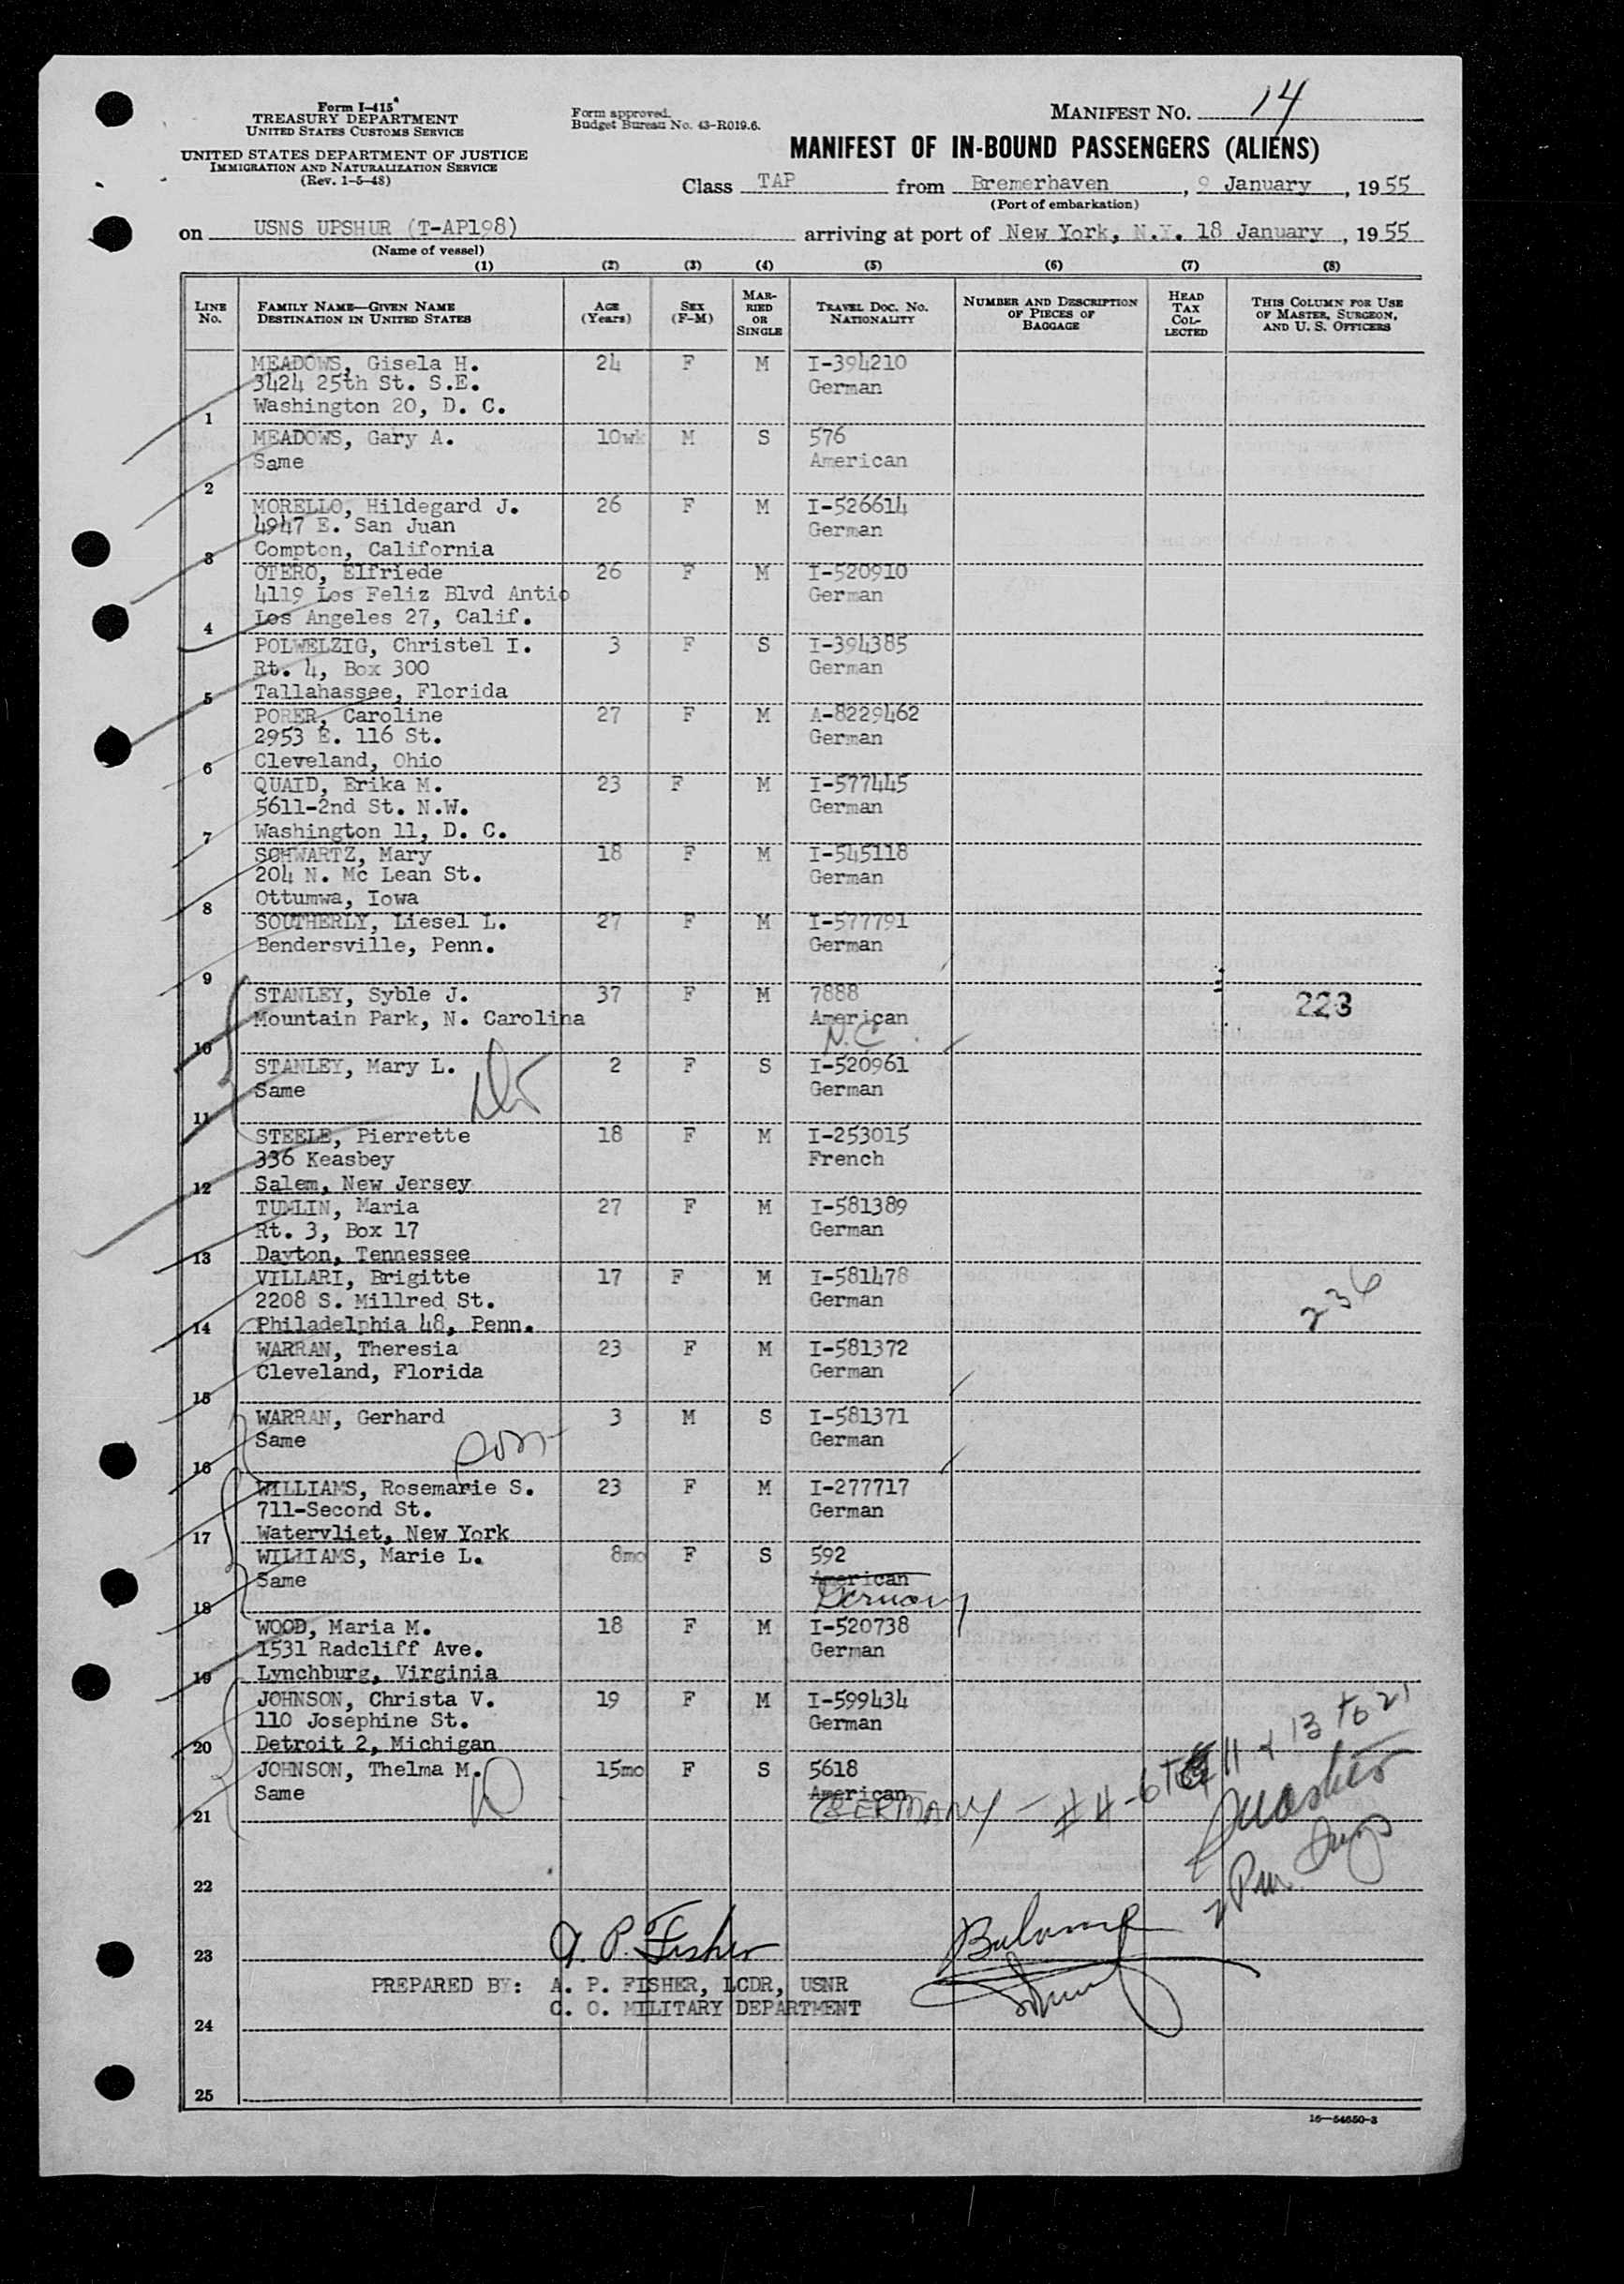 Form I-415
TREASURY DEPARTMENT
UNITED STATES CUSTOMS SERVICE
UNITED STATES DEPARTMENT OF JUSTICE
IMMIGRATION AND NATURALIZATION SERVICE
(Rev. 1-5-48)
Form approved.
Budget Bureau No. 43-R019.6.
MANIFEST NO. 14
MANIFEST OF IN-BOUND PASSENGERS (ALIENS)
Class TAP from Bremerhaven, 9 January, 1955
(Port of embarkation)
on USNS UPSHUR (T-AP198) arriving at port of New York, N.Y. 18 January, 1955
(Name of vessel)
(1) (2) (3) (4) (5) (6) (7) (8)
LINE No. FAMILY NAME—GIVEN NAME DESTINATION IN UNITED STATES AGE (Years) SEX (F-M) MARRIED OR SINGLE TRAVEL DOC. NO. NATIONALITY NUMBER AND DESCRIPTION OF PIECES OF BAGGAGE HEAD TAX COLLECTED THIS COLUMN FOR USE OF MASTER, SURGEON, AND U. S. OFFICERS
MEADOWS, Gisela H. 24 F M I-394210
3424 25th St. S.E. German
1 Washington 20, D. C.
MEADOWS, Gary A. 10wk M S 576
Same American
2
MORELLO, Hildegard J. 26 F M I-526614
4947 E. San Juan German
3 Compton, California
OTERO, Elfriede 26 F M I-520910
4119 Los Feliz Blvd Antio German
4 Los Angeles 27, Calif.
POLWELZIG, Christel I. 3 F S I-394385
Rt. 4, Box 300 German
5 Tallahassee, Florida
PORER, Caroline 27 F M A-8229462
2953 E. 116 St. German
6 Cleveland, Ohio
QUAID, Erika M. 23 F M I-577445
5611-2nd St. N.W. German
7 Washington 11, D. C.
SCHWARTZ, Mary 18 F M I-545118
204 N. Mc Lean St. German
8 Ottumwa, Iowa
SOUTHERLY, Liesel L. 27 F M I-577791
Bendersville, Penn. German
9
STANLEY, Syble J. 37 F M 7888 223
Mountain Park, N. Carolina American
10 N.C.
STANLEY, Mary L. 2 F S I-520961
Same German
11
STEELE, Pierrette 18 F M I-253015
336 Keasbey French
12 Salem, New Jersey
TUMLIN, Maria 27 F M I-581389
Rt. 3, Box 17 German
13 Dayton, Tennessee
VILLARI, Brigitte 17 F M I-581478
2208 S. Millred St. German 236
14 Philadelphia 48, Penn.
WARRAN, Theresia 23 F M I-581372
Cleveland, Florida German
15
WARRAN, Gerhard 3 M S I-581371
Same German
16 son
WILLIAMS, Rosemarie S. 23 F M I-277717
711-Second St. German
17 Watervliet, New York
WILLIAMS, Marie L. 8mo F S 592
Same American
18 Germany
WOOD, Maria M. 18 F M I-520738
1531 Radcliff Ave. German
19 Lynchburg, Virginia
JOHNSON, Christa V. 19 F M I-599434
110 Josephine St. German
20 Detroit 2, Michigan
JOHNSON, Thelma M. 15mo F S 5618
Same American
21 GERMANY - #4-6 to 11 + 13 to 21
22
23 A. P. Fisher
PREPARED BY: A. P. FISHER, LCDR, USNR
C. O. MILITARY DEPARTMENT
24
25
16—54650-3